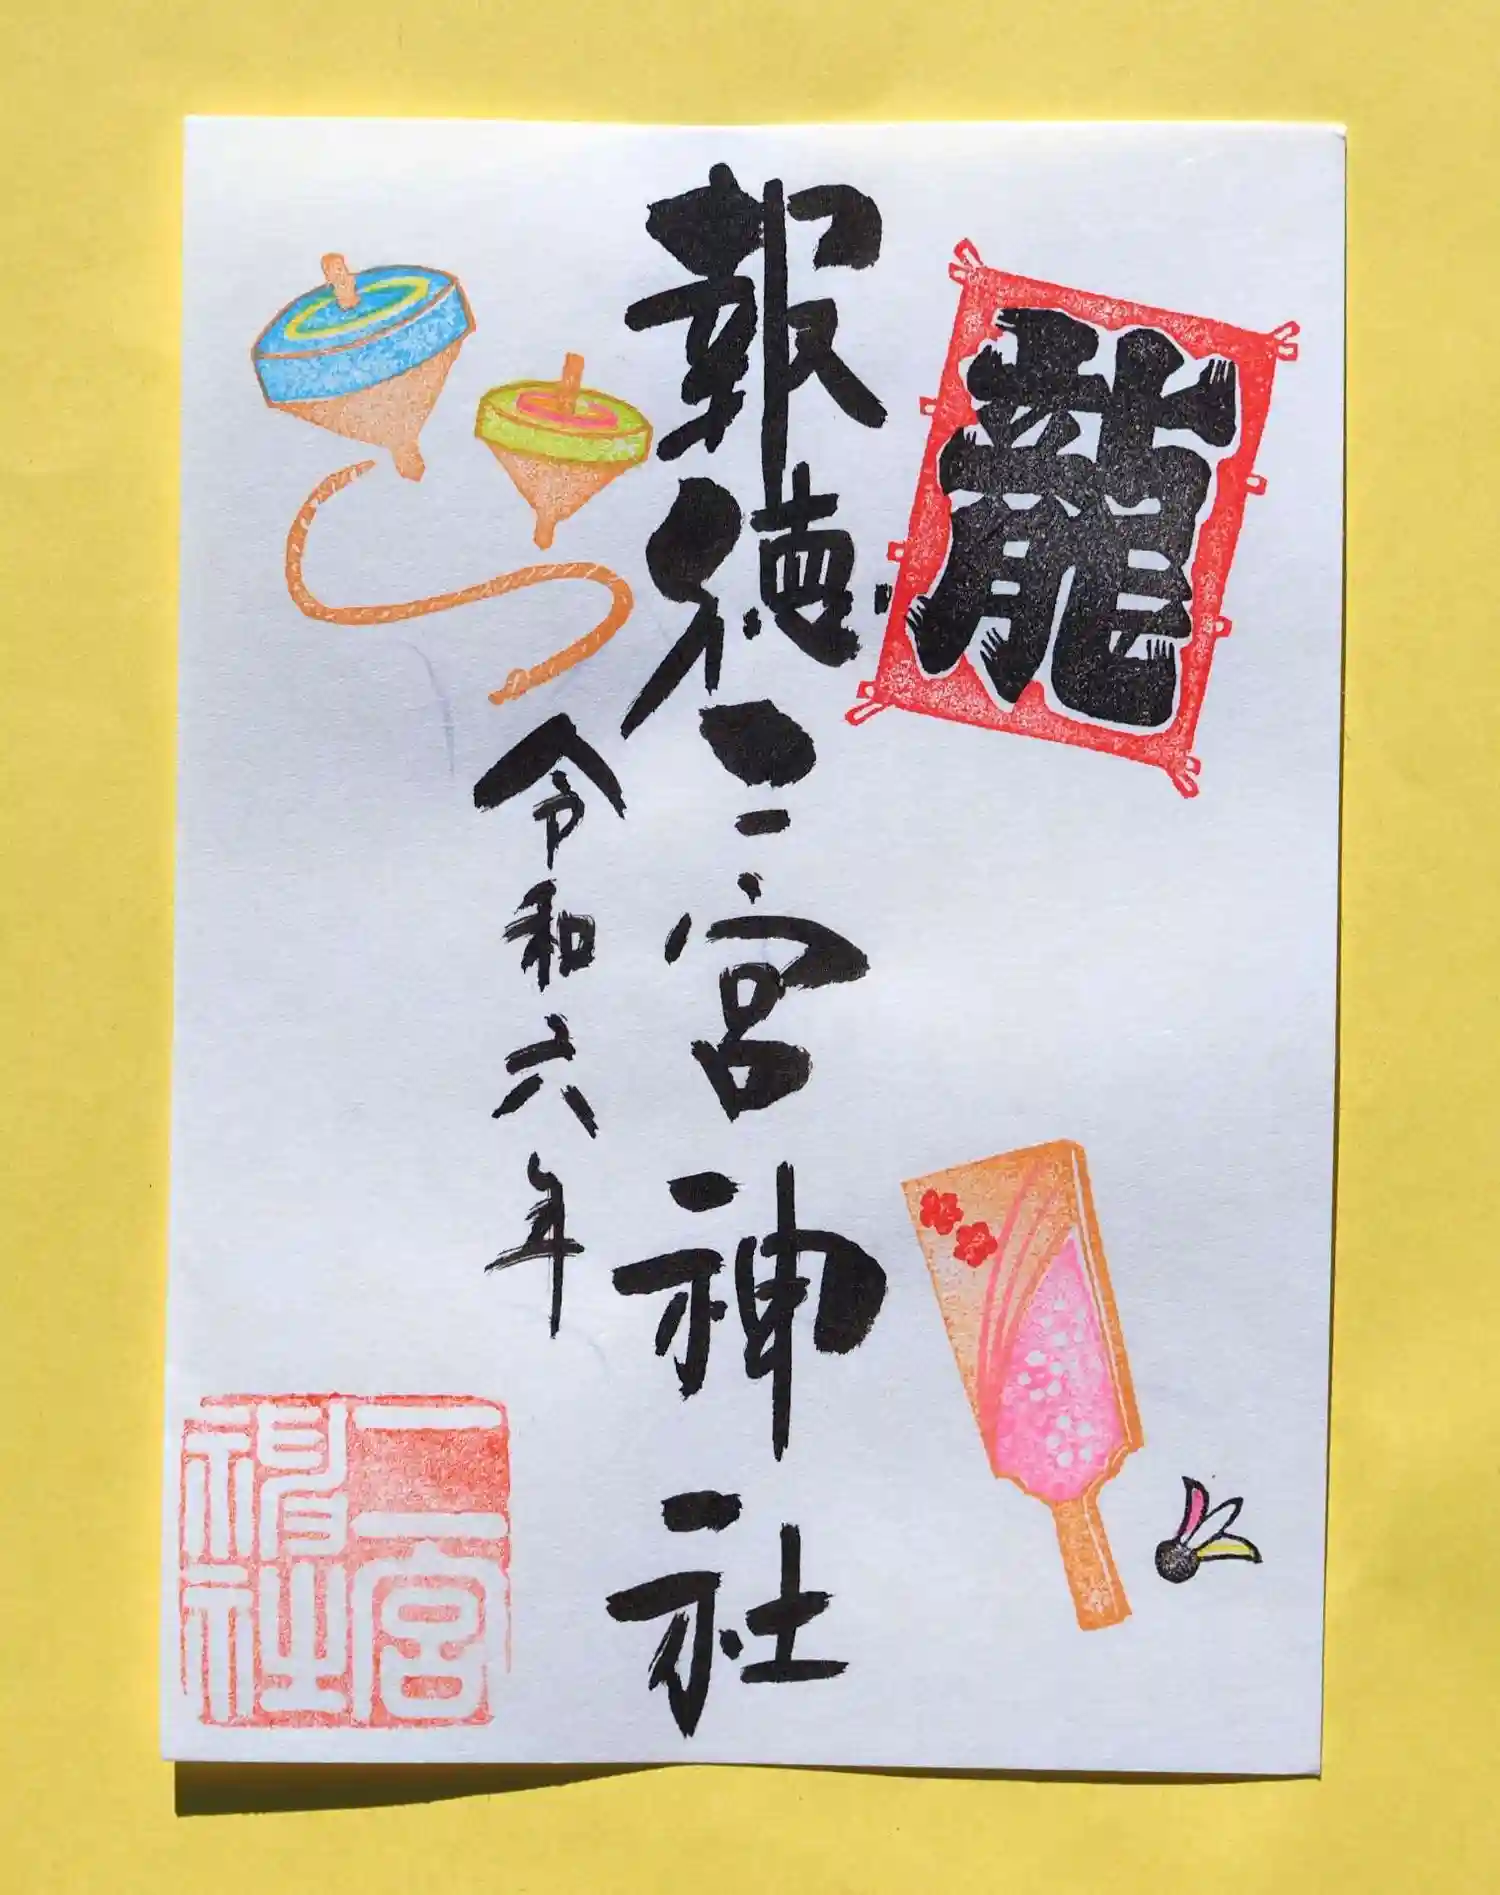 龍
報徳二宮神社
令和六年
二宮
神社